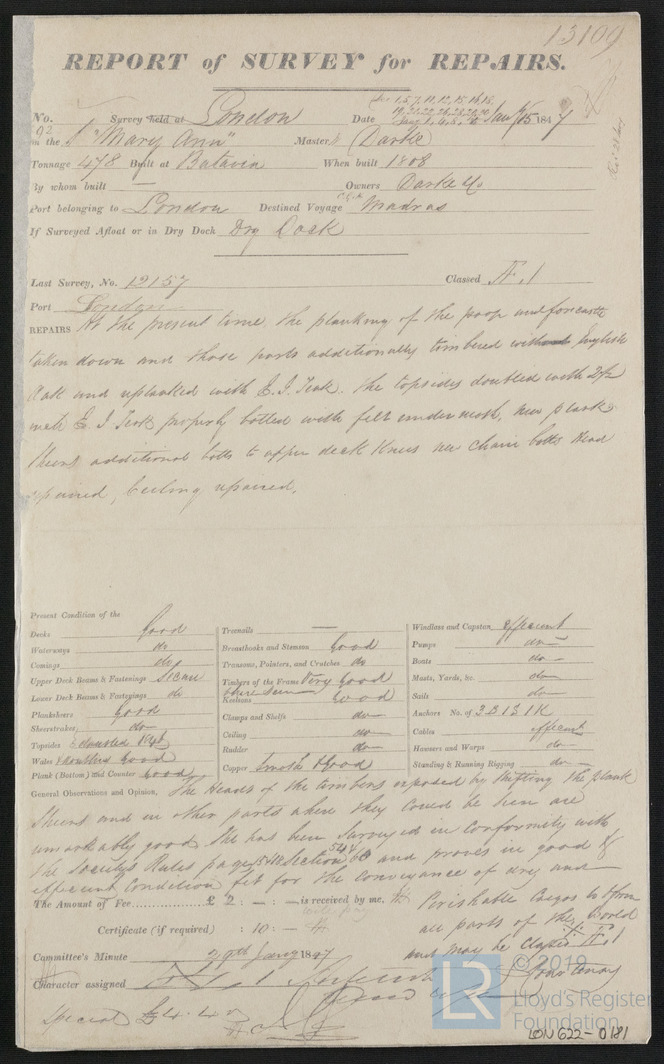 13109
REPORT of SURVEY for REPAIRS.
No. 92 Survey held at London Date Jany 15 1847
on the S "Mary Ann" Master Darke
Tonnage 478 Built at Batavia When built 1808
By whom built — Owners Darke & Co
Port belonging to London Destined Voyage Madras
If Surveyed Afloat or in Dry Dock Dry Dock
Last Survey, No. 12157 Classed Æ.1
Port London
REPAIRS At the present time the planking of the poop and forecastle
taken down and those parts additionally timbered with English
Oak and upplanked with E. I. Teak. the topsides doubled with 2½
inch E. I. Teak properly bolted with felt underneath, new plank
sheers additional bolts to upper deck Knees new Chain bolts Head
repaired, Ceiling repaired.
Present Condition of the
Decks Good
Waterways do
Comings do
Upper Deck Beams & Fastenings
Lower Deck Beams & Fastenings do
Planksheers Good
Sheerstrakes do
Topsides doubled
Wales doubled Good
Plank (Bottom) and Counter Good
Treenails —
Breasthooks and Stemson Good
Transoms, Pointers, and Crutches do
Timbers of the Frame Very Good
where seen
Keelsons Good
Clamps and Shelfs do
Ceiling do
Rudder do
Copper Good
Windlass and Capstan efficient
Pumps do
Boats do
Masts, Yards, &c. do
Sails do
Anchors No. of 3B 1S 1K
Cables efficient
Hawsers and Warps do
Standing & Running Rigging do
General Observations and Opinion, The Heads of the timbers exposed by shifting the plank
sheers and in other parts where they could be seen are
remarkably good. She has been Surveyed in conformity with
the Society's Rules page Section and proves in good &
efficient Condition fit for the conveyance of dry and
Perishable Cargo to & from
all parts of the World
and may be classed Æ.1
The Amount of Fee £ 2 : - : - is received by me,
Certificate (if required) : 10 : -
Committee's Minute 29th Jany 1847
Character assigned
Special £4.4.0
© 2019
LR Lloyd's Register
Foundation
LON622-0181